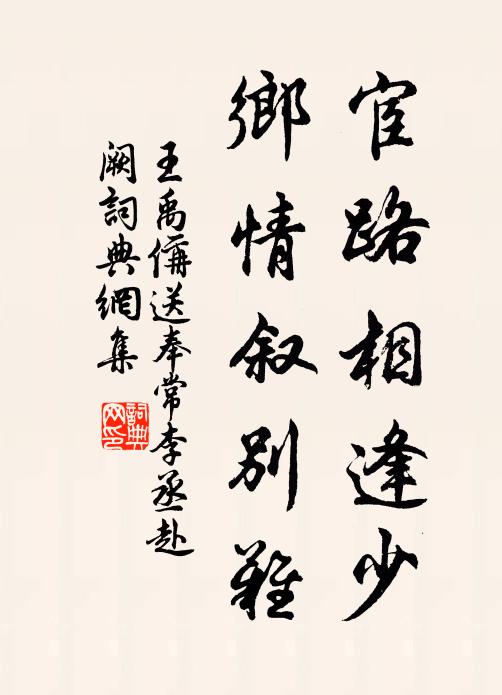 宦路相逢少
鄉情叙別難
王禹偁送奉常李丞赴
闕詞典網集
詞典
网印